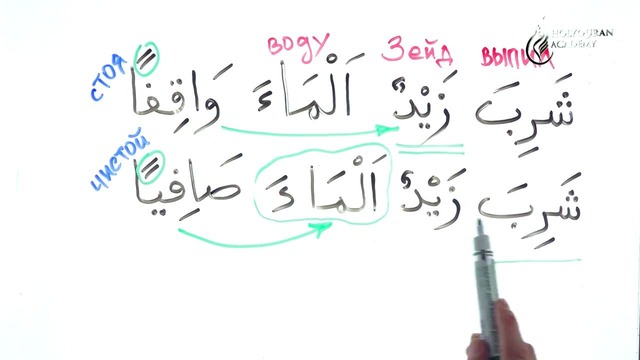 HOLYQURAN
ACADEMY
выпил Зейд воду стоя
شَرِبَ زَيْدٌ اَلْمَاءَ وَاقِفًا
чистой
شَرِبَ زَيْدٌ اَلْمَاءَ صَافِيًا